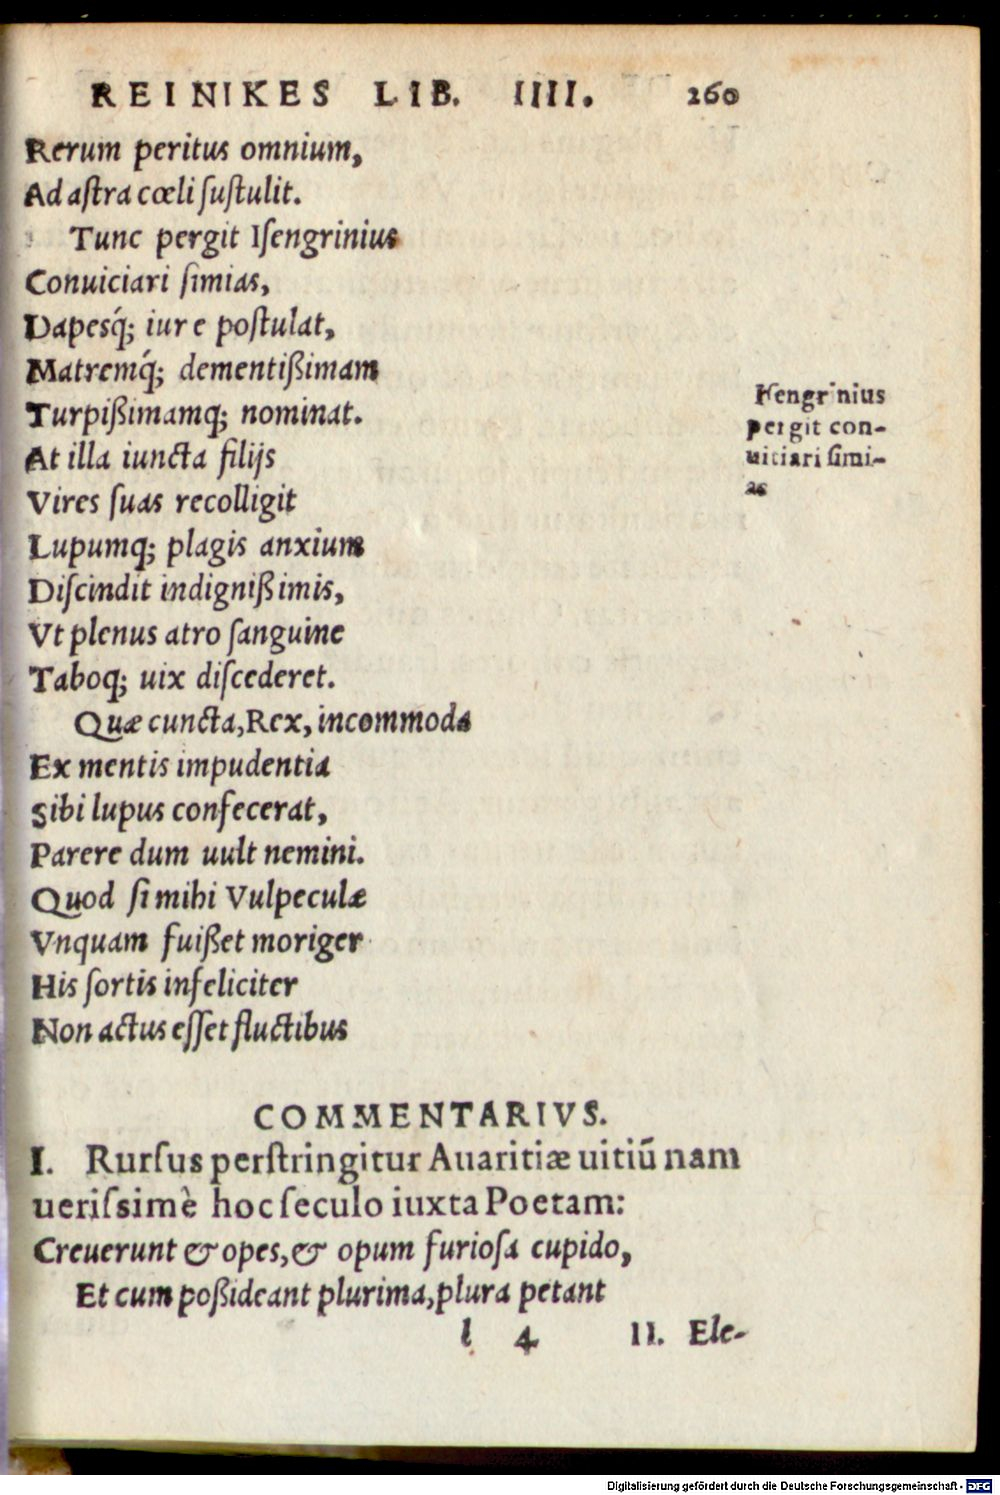 REINIKES LIB. IIII. 260
Rerum peritus omnium,
Ad aſtra cœli ſuſtulit.
Tunc pergit Iſengrinius
Conuiciari ſimias,
Dapesq́; iure poſtulat,
Matremq́; dementißimam
Turpißimamq; nominat.
At illa iuncta filijs
Vires ſuas recolligit
Lupumq; plagis anxium
Diſcindit indignißimis,
Vt plenus atro ſanguine
Taboq; uix diſcederet.
Quæ cuncta, Rex, incommoda
Ex mentis impudentia
Sibi lupus confecerat,
Parere dum uult nemini.
Quod ſi mihi Vulpeculæ
Vnquam fuißet moriger
His ſortis infeliciter
Non actus eſſet fluctibus
Iſengrinius
pergit con-
uitiari ſimi-
as
COMMENTARIVS.
I. Rurſus perſtringitur Auaritiæ uitiū nam
ueriſsimè hoc ſeculo iuxta Poetam:
Creuerunt & opes, & opum furioſa cupido,
Et cum poßideant plurima, plura petant
l 4 II. Ele-
Digitalisierung gefördert durch die Deutsche Forschungsgemeinschaft - DFG